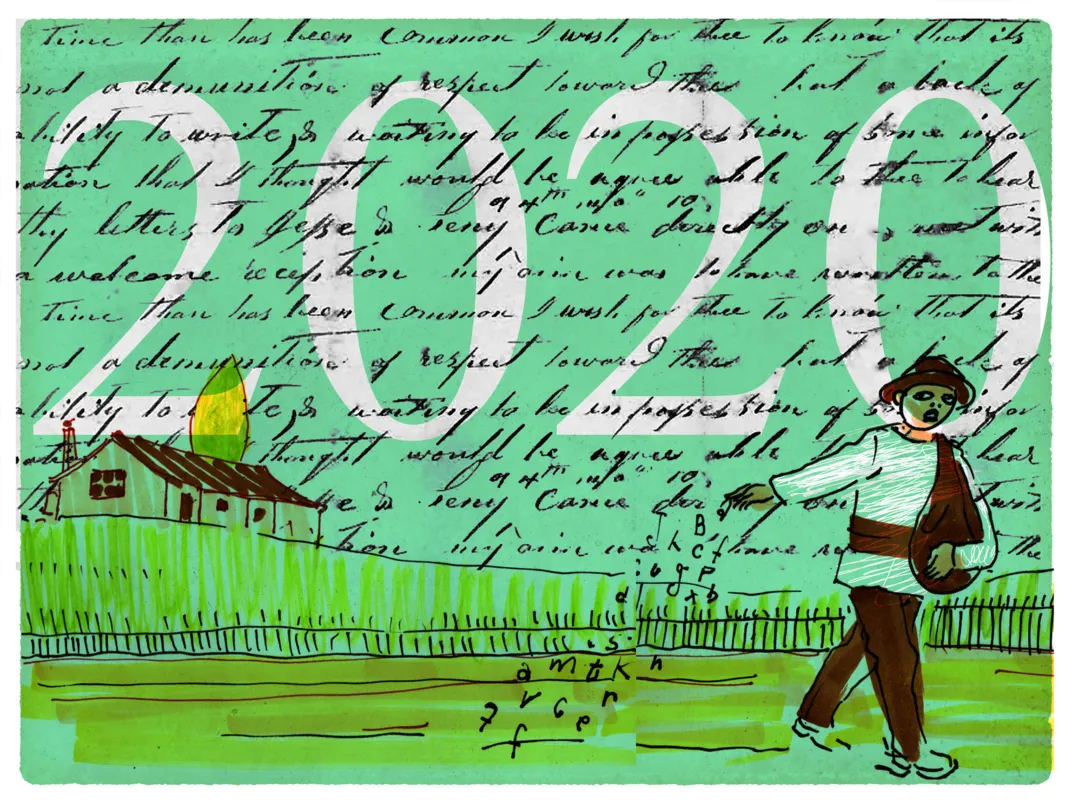 2020
Time than has been common I wish for thee to know that its
not a demunition of respect toward thee but a lack of
ability to write, & wanting to be in possession of some infor
ation that I thought would be agree able to thee to hear
9 4th m/o 10
thy letters to & Came directly on met with
a welcome reception my aim was to have written to the
Time than has been common I wish for thee to know that its
not a demunition of respect toward thee but a lack of
bility to te, & wanting to be in possession of infor
thought would be agree able hear
9 4th m/o 10
& Came dir on with
my aim wa have the
B
s k c f
u g p
d t b
s
a m t k h
r c n
7 e
f